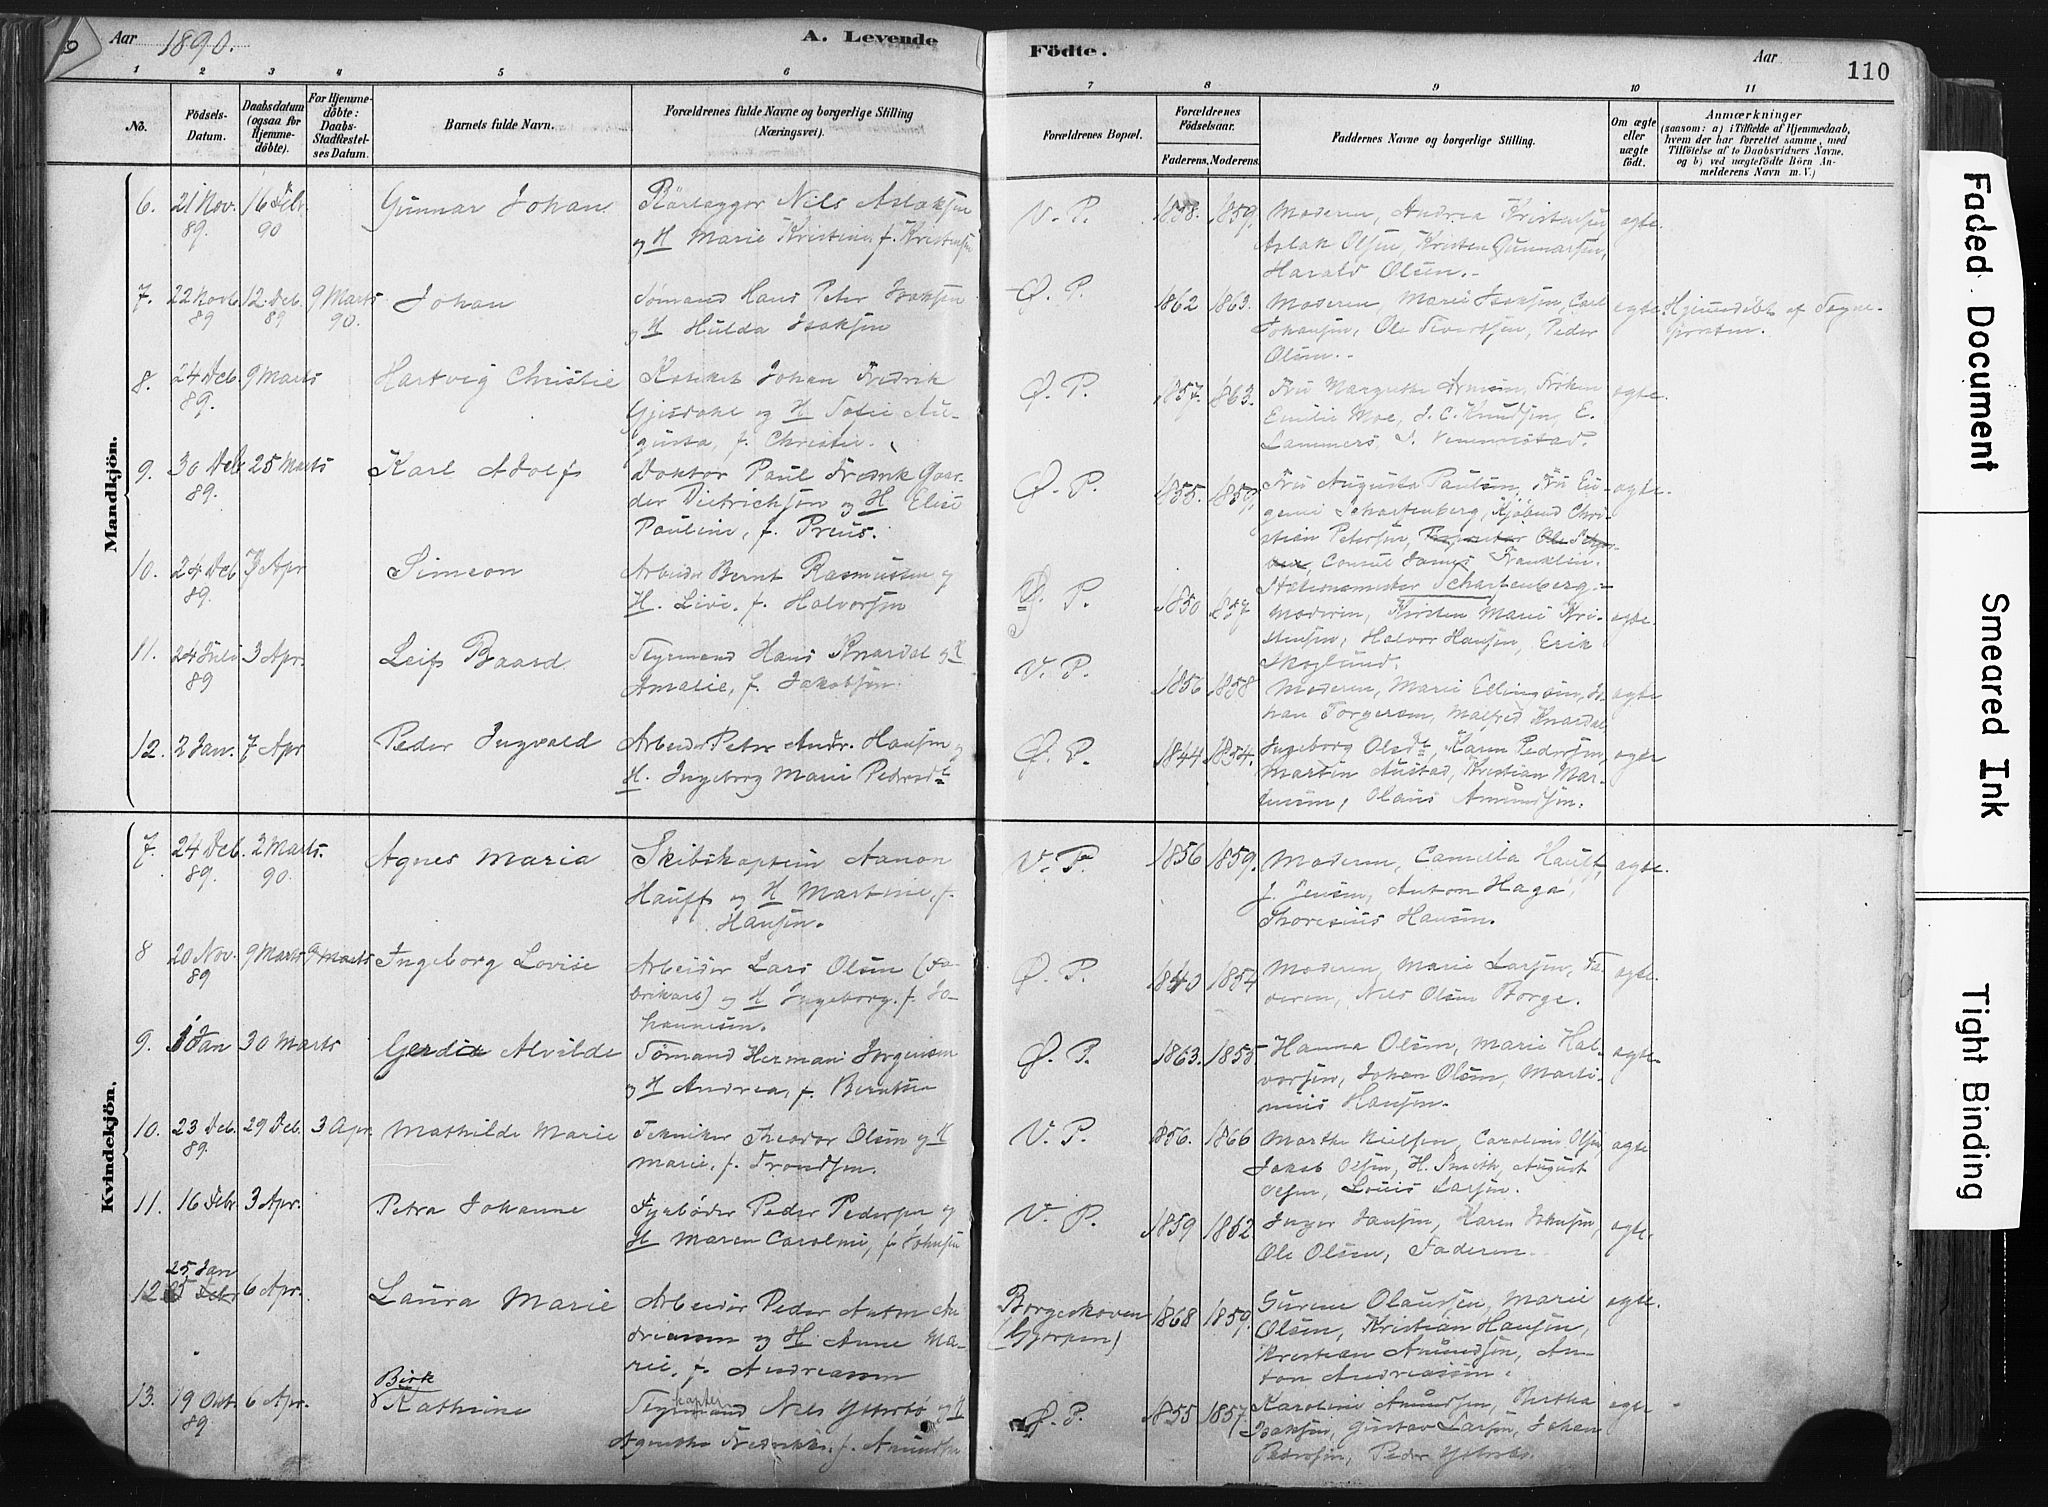 6
Aar 1890.
A. Levende
Födte.
Aar
110
1 2 3 4 5 6 7 8 9 10 11
No.
Födsels-
Datum.
Daabsdatum
(ogsaa for
Hjemme-
döbte).
For Hjemme-
döbte:
Daabs-
Stadfæstel-
ses Datum.
Barnets fulde Navn.
Forældrenes fulde Navne og borgerlige Stilling
(Næringsvei).
Forældrenes Bopæl.
Forældrenes
Födselsaar.
Faderens. Moderens.
Faddernes Navne og borgerlige Stilling.
Om ægte
eller
uægte
født.
Anmærkninger
(saasom: a) i Tilfælde af Hjemmedaab,
hvem der har forrettet samme, med
Tilföielse af to Daabsvidners Navne,
og b) ved uægtefödte Börn An-
melderens Navn m. V.)
Mandkjön.
6. 21 Nov. 89. 16 Febr. 90 Gunnar Johan
Rörlægger Nils Aslaksen
og H Marie Kristine, f. Kristensen
V. P. 1858. 1859.
Moderen, Andrea Kristensen
Aslak Olsen, Kristen Gunnarsen,
Harald Olsen.
ægte.
7. 22 Novb. 89 12 Deb. 89 9 Marts 90. Johan
Sømand Hans Peter Isaksen
og H Hulda Isaksen
Ø. P. 1862 1863.
Moderen, Marie Isaksen, Carl
Johansen, Ole Sivertsen, Peder
Olsen.
ægte. Hjemmedöbt af Sogne-
presten.
8. 24 Deb. 89. 9 Marts Hartvig Christie
Kateket Johan Fredrik
Gjesdahl og H Sofie Au-
gusta, f. Christie.
Ø. P. 1857. 1863.
Fru Margrethe Arnesen, Frøken
Emilie Moe, J. C. Knudsen, E.
Lammers, S. Vemmestad.
ægte.
9. 30 Deb. 89. 25 Marts Karl Adolf
Doktor Paul Fredrik Gaar-
der Dietrichson og H Elise
Pauline, f. Preus.
Ø. P. 1855. 1859.
Fru Augusta Paulsen, Fru Eu-
genie Scharfenberg, Kjöbmd Chri-
stian Petersen,
Consul James Franklin.
Stationsmester Scharfenberg.
ægte.
10. 24 Deb. 89. 7 Apr Simeon
Arbeider Bernt Rasmussen og
H. Livi, f. Halvorsen
Ø. P. 1850 1857
Moderen, Kirsten Marie Kri-
stensen, Halvor Hansen, Erik
Skoglund.
ægte.
11. 24 Juli 89 3 Apr. Leif Baard
Styrmand Hans Knardal og H
Amalie, f. Jakobsen.
V. P. 1856 1858
Moderen, Marie Ellingsen, Jo-
han Torgersen, Malfred Knardal
ægte
12. 2 Jan. 7 Apr Peder Ingvald
Arbeider Peter Andr. Hansen og
H. Ingeborg Marie Pedersdt
Ø. P. 1844 1854.
Ingeborg Olsdt, Karen Pedersen,
Martin Austad, Kristian Mar-
tinsen, Olaus Amundsen.
ægte
Kvindekjön.
7. 24 Deb. 89. 2 Marts. 90. Agnes Maria
Skibskaptein Aanon
Hauff og H Martine, f.
Hansen.
V. P. 1856 1859.
Moderen, Camilla Hauff,
J. Jensen, Anton Haga,
Thoresius Hansen.
ægte.
8 20 Nov. 89 9 Marts 9 Marts Ingeborg Lovise
Arbeider Lars Olsen (Fa-
brikarb) og H Ingeborg, f. Jo-
hannesen.
Ø. P. 1840 1854
Moderen, Marie Larsen, Fa-
deren, Nils Olsen Borge.
ægte.
9. 1 Jan 30 Marts Gerda Alvilde
Sømand Herman Jørgensen
og H Andrea, f. Berntsen
Ø. P. 1863. 1855
Hanna Olsen, Marie Hal-
vorsen, Johan Olsen, Marti-
nius Hansen.
ægte.
10. 23 Deb. 89. 29 Deb. 3 Apr. Mathilde Marie
Tekniker Theodor Olsen og H
Marie, f. Trondsen.
V. P. 1856. 1866
Marthe Nielsen, Caroline Olsen,
Jakob Olsen, H. Smith, August
Olsen, Louis Larsen.
ægte
11. 16 Febr. 3 Apr. Petra Johanne
Fyrbøder Peder Pedersen og
H Maren Caroline, f. Johnsen
V. P. 1859 1862
Inger Jansen, Karen Johnsen,
Ole Olsen, Faderen.
ægte.
12. 25 Jan 6 Apr. Laura Marie
Arbeider Peder Anton An-
dreassen og H. Anne Ma-
rie, f. Andreassen
Borgeskoven
(Gjerpen) 1868 1859.
Gurine Olaussen, Marie
Olsen, Kristian Hansen,
Kristian Amundsen, An-
ton Andreassen.
ægte.
13. 19 Oct. 89 6 Apr. Birk
Kathrine
Nils Ytterbø og H
Agnethe Fredrikke, f. Amundsen
Ø. P. 1855 1857.
Karoline Amundsen, Bertha
Isaksen, Gustav Larsen, Johan
Pedersen, Peder Ytterbø.
ægte
Faded Document
Smeared Ink
Tight Binding